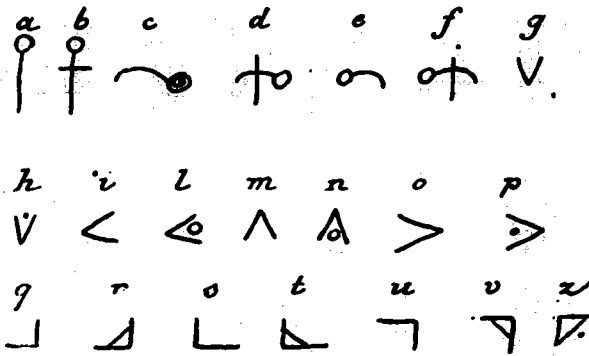 a b c d e f g
h i l m n o p
q r s t u v z